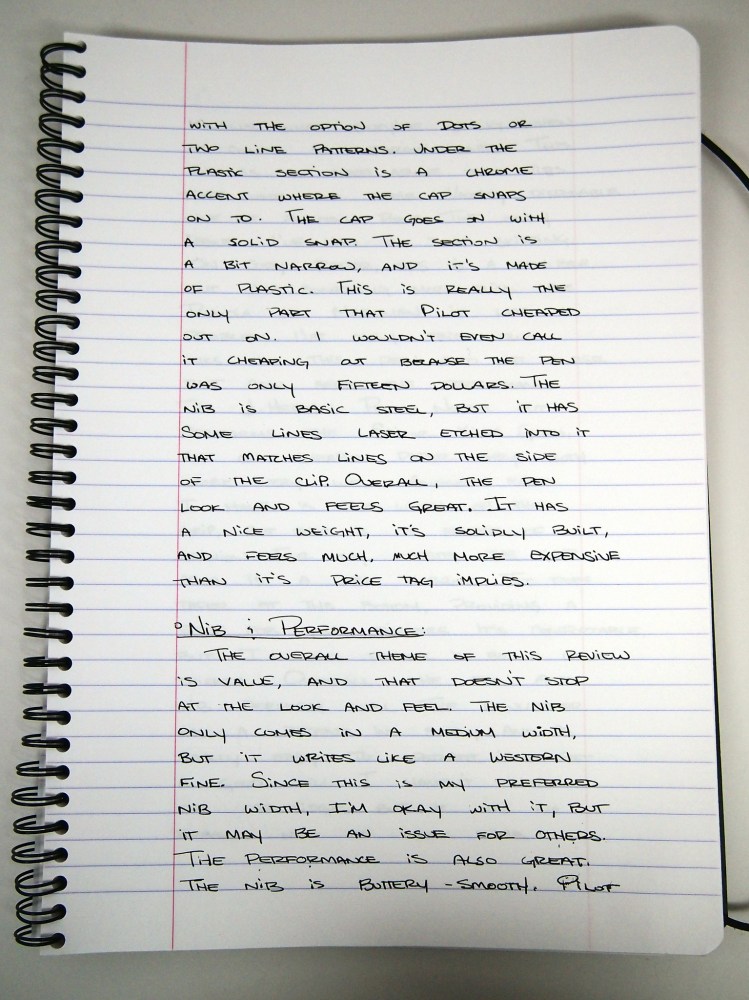 WITH THE OPTION OF DOTS OR
TWO LINE PATTERNS. UNDER THE
PLASTIC SECTION IS A CHROME
ACCENT WHERE THE CAP SNAPS
ON TO. THE CAP GOES ON WITH
A SOLID SNAP. THE SECTION IS
A BIT NARROW, AND IT'S MADE
OF PLASTIC. THIS IS REALLY THE
ONLY PART THAT PILOT CHEAPED
OUT ON. I WOULDN'T EVEN CALL
IT CHEAPING OUT BECAUSE THE PEN
WAS ONLY FIFTEEN DOLLARS. THE
NIB IS BASIC STEEL, BUT IT HAS
SOME LINES LASER ETCHED INTO IT
THAT MATCHES LINES ON THE SIDE
OF THE CLIP. OVERALL, THE PEN
LOOK AND FEELS GREAT. IT HAS
A NICE WEIGHT, IT'S SOLIDLY BUILT,
AND FEELS MUCH, MUCH MORE EXPENSIVE
THAN IT'S PRICE TAG IMPLIES.
° NIB & PERFORMANCE:
THE OVERALL THEME OF THIS REVIEW
IS VALUE, AND THAT DOESN'T STOP
AT THE LOOK AND FEEL. THE NIB
ONLY COMES IN A MEDIUM WIDTH,
BUT IT WRITES LIKE A WESTERN
FINE. SINCE THIS IS MY PREFERRED
NIB WIDTH, I'M OKAY WITH IT, BUT
IT MAY BE AN ISSUE FOR OTHERS.
THE PERFORMANCE IS ALSO GREAT.
THE NIB IS BUTTERY-SMOOTH. PILOT